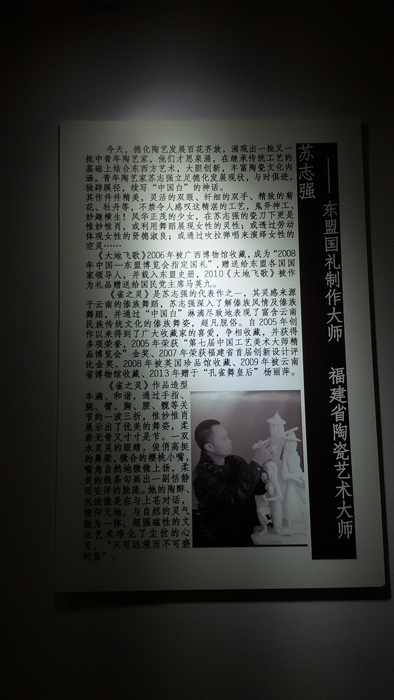 苏志强
——东盟国礼制作大师 福建省陶瓷艺术大师
今天，德化陶艺发展百花齐放，涌现出一批又一
批中青年陶艺家，他们才思泉涌，在继承传统工艺的
基础上结合东西方艺术，大胆创新，丰富陶瓷文化内
涵。青年陶艺家苏志强立足德化发展现状，与时俱进，
独辟蹊径，续写“中国白”的神话。
其作件件精美，灵活的双眼、纤细的双手、精致的菊
花、牡丹等，不禁令人感叹这精湛的工艺，鬼斧神工，
妙趣横生！风华正茂的少女，在苏志强的瓷刀下更是
惟妙惟肖，或利用舞蹈展现女性的灵性；或通过劳动
体现女性的贤德淑良；或通过吹拉弹唱来演绎女性的
空灵……
《大地飞歌》2006年被广西博物馆收藏，成为“2008
年中国—东盟博览会指定国礼”，赠送给东盟各国国
家领导人，并载入东盟史册，2010《大地飞歌》被作
为礼品赠送给国民党主席马英九。
《雀之灵》是苏志强的代表作之一，其灵感来源
于云南的傣族舞蹈，苏志强深入了解傣族风情及傣族
舞蹈，并通过“中国白”淋漓尽致地表现了富含云南
民族传统文化的傣族舞姿，超凡脱俗。自2005年创
作以来得到了广大收藏家的喜爱，争相收藏，并获得
多项荣誉，2005年荣获“第七届中国工艺美术大师精
品博览会”金奖、2007年荣获福建省首届创新设计评
比金奖、2008年被英国珍品馆收藏、2009年被云南
省博物馆收藏、2013年赠于“孔雀舞皇后”杨丽萍。
《雀之灵》作品造型
丰满、和谐，通过手指、
腕、臂、胸、腰、髋等关
节的一波三折，惟妙惟肖
展示出了优美的舞姿，柔
若无骨又寸寸是节。一双
水灵灵的眼睛，俊俏高挺
的鼻梁，微合的樱桃小嘴，
嘴角自然地微微上扬，柔
美的线条勾画出一副恬静
而安详的脸庞。她的陶醉、
沉迷像是在与上苍对话，
俯仰天地，与自然的灵气
融为一体，超强磁性的文
化艺术净化了尘世的心
灵，“只可远观而不可亵
玩焉”。